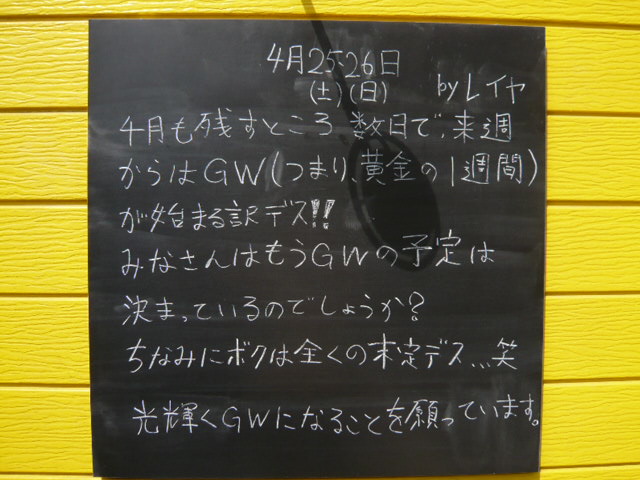 4月25・26日
(土)(日) byレイヤ
4月も残すところ数日で、来週
からはGW(つまり、黄金の1週間)
が始まる訳デス!!
みなさんはもうGWの予定は
決まっているのでしょうか?
ちなみにボクは全くの未定デス…笑
光輝くGWになることを願っています。